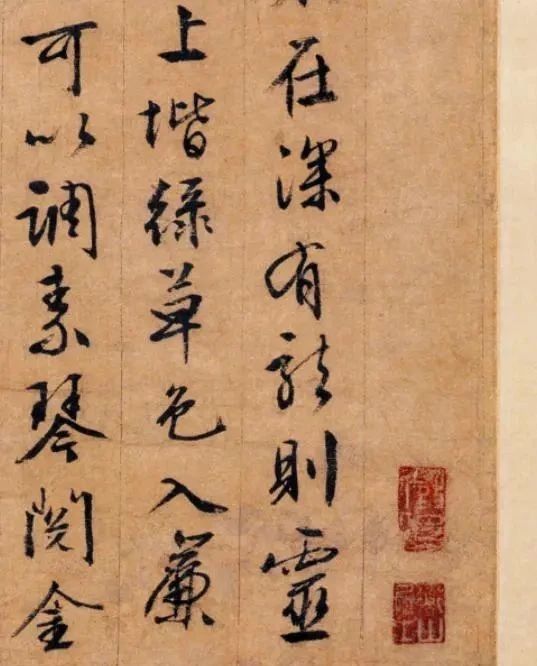 在深有龍則靈
上堦綠草色入簾
可以調素琴閱金